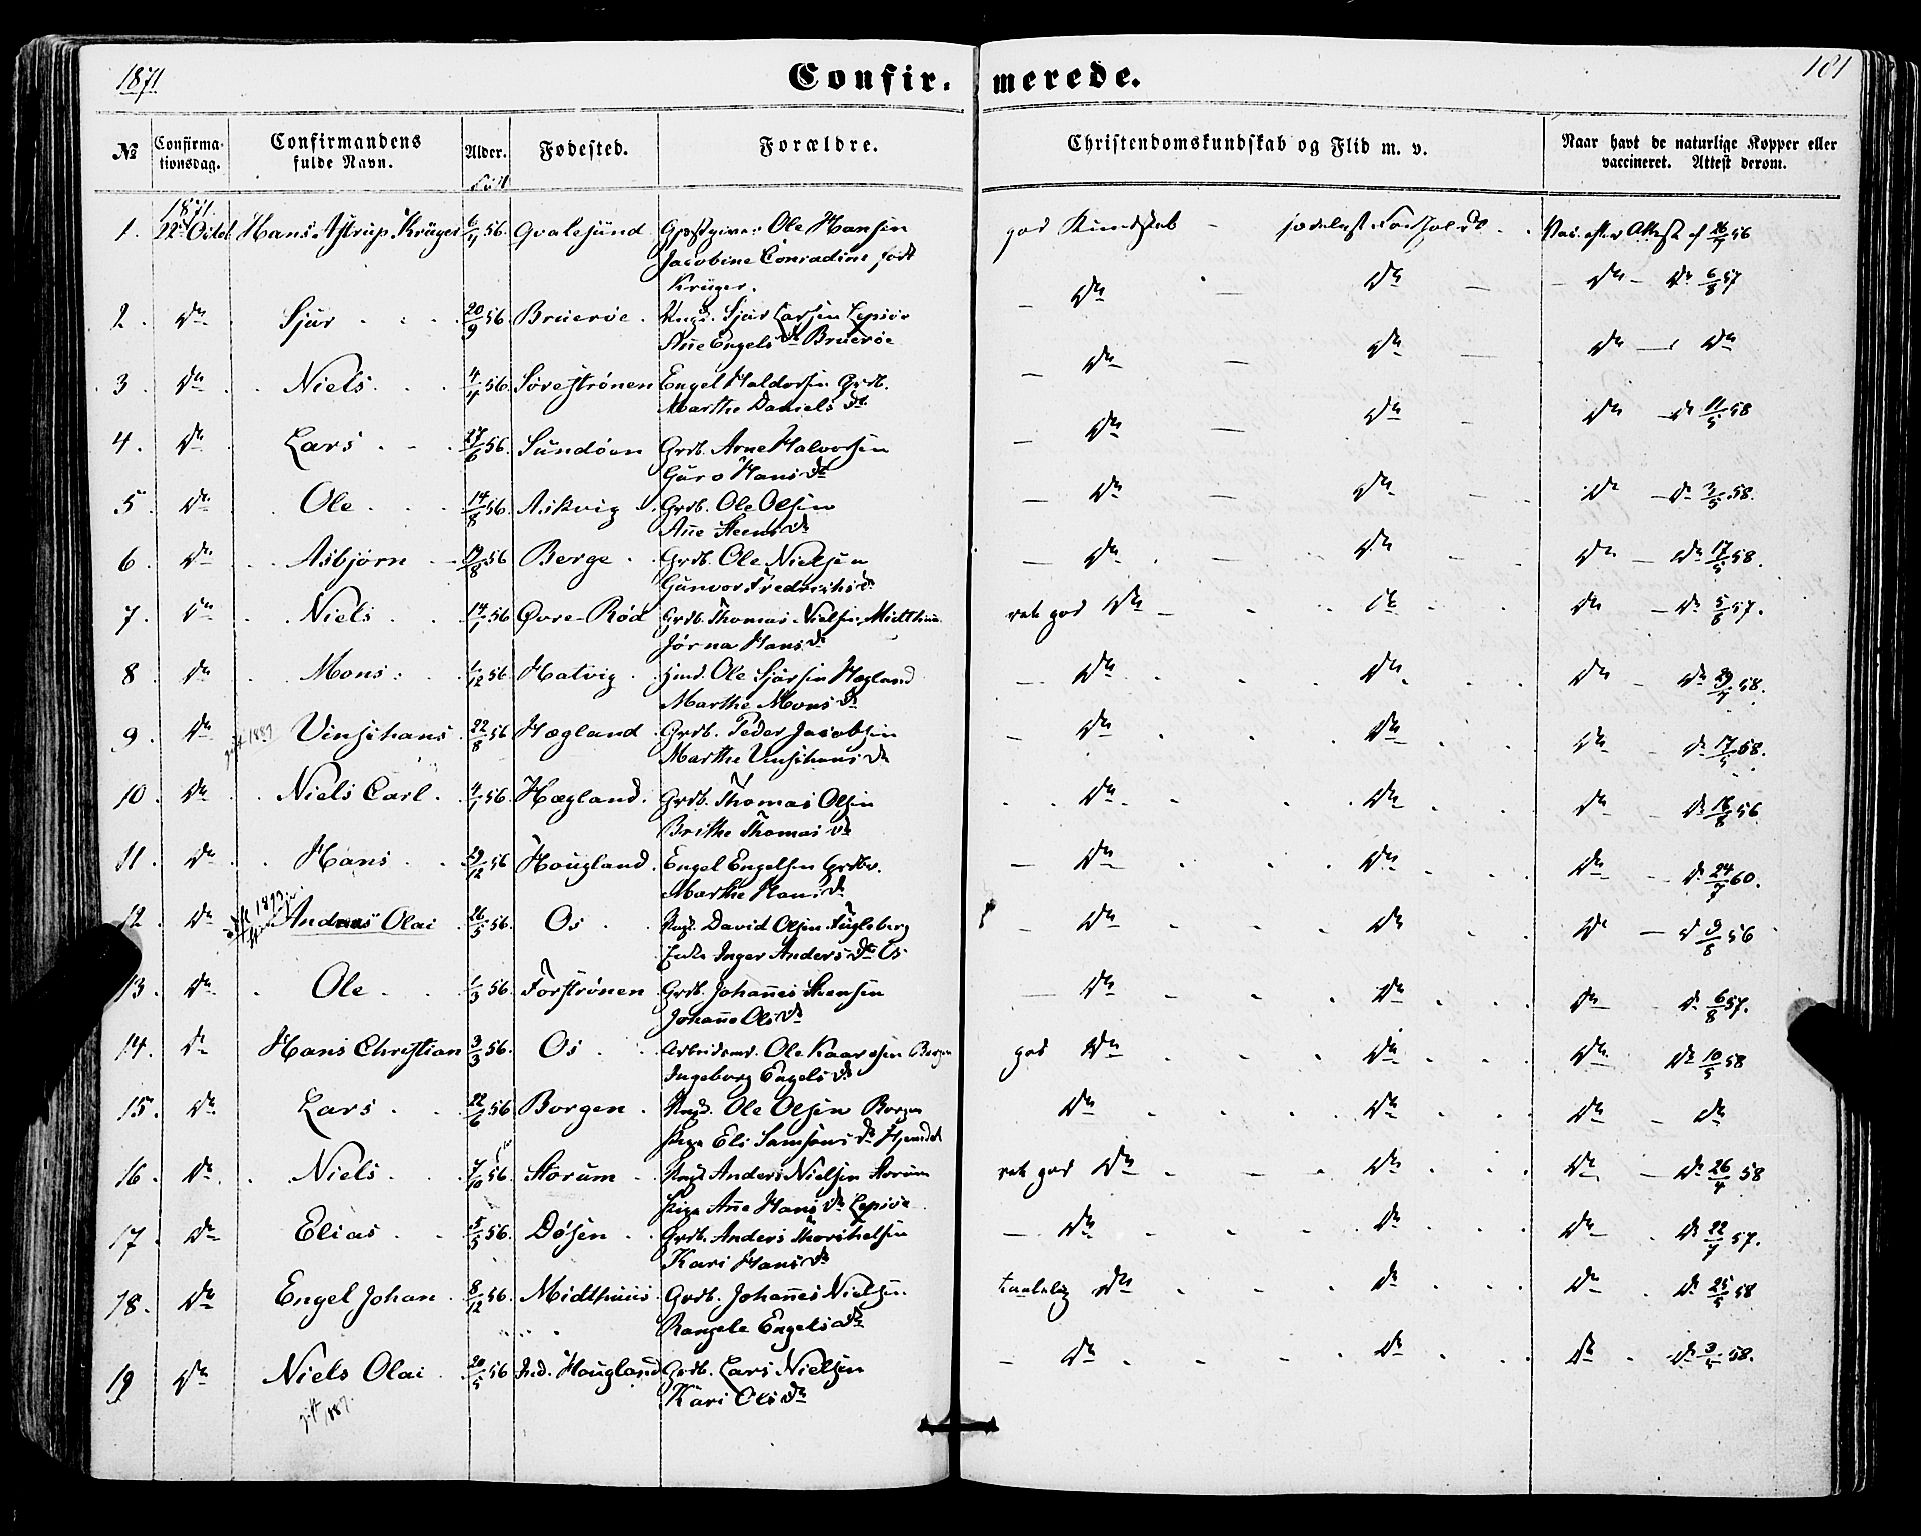 1871
Confir. merede.
181
№ Confirma- tionsdag. Confirmandens fulde Navn. Alder. Fødested. Forældre. Christendomskundskab og Flid m. v. Naar havt de naturlige Kopper eller vaccineret. Attest derom.
Født
1871.
1. 22 Octob Hans Astrup Krüger 6/4 56. Gvalesund Gjæstgiver Ole Hansen god Kundskab - Vac. efter Attest af 26/7 56
Jacobine Conradine født
Krüger.
2. Do Sjur 20/9 56. Bruerøe. Sjur Larsen Lepsøe - Do - Do - Do - Do 6/8 57
Ane Engels Dr Bruerøe
3. Do Niels. 4/4 56. Sørestrønen Engel Haldorsen Grdb. - Do - Do - Do - Do
Marthe Daniels Dr
4. Do Lars 56. Sundøen Grdb. Arne Halvorsen - Do - Do - Do - Do 11/5 58
Guro Hans Dr
5. Do Ole 14/8 56. Askvig Grdb. Ole Olsen - Do - Do - Do - Do 3/5 58.
Ane Steens Dr
6. Do Asbjørn 56 Berge Grdb. Ole Nielsen - Do - Do - Do - Do 17/5 58.
Gunvor Fredriks Dr
7. Do Niels 14/1 56 Øvre-Rød Grdb. Thomas Nielsen Midthun ret god Do - Do - Do 5/8 57.
Jørna Hans Dr
8 Do Mons 56 Hatvig Ole Sjursen Hegland - Do Do Do - Do 58.
Marthe Mons Dr
9. Do gift 1889 Vinsihans 22/8 56 Hægland Grdb. Peder Jacobsen - Do Do Do - Do 17/5 58.
Marthe Vinsihans Dr
10. Do Niels Carl 4/1 56 Hægland. Grdb. Thomas Olsen Do Do Do Do 18/8 56
Brithe Thomas Dr
11. Do Hans 56 Hougland. Engel Engelsen Grdb. - Do Do Do - Do 24/7 60.
Marthe Hans Dr
12. Do Andreas Olai 26/5 56. Os David Olsen Fugleberg - Do Do Do - Do 9/8 56
Enke Inger Anders Dr Os
13. Do Ole 56. Forstrønen Grdb. Johannes Steensen - Do Do Do - Do 6/8 57.
Johanne Ols Dr
14. Do Hans Christian 3/3 56. Os Arbeidsmd. Ole Kaaresen god Do Do Do Do 10/5 58
Ingeborg Engels Dr
15. Do Lars 22/6 56 Borgen Ole Olsen Borgen Do Do Do - Do
Pige Eli Samsons Dr
16. Do Niels 7/10 56 Storum Anders Nielsen Storum ret god Do Do Do - Do 26/4 58
Pige Ane Hans Dr Lepsøe
17. Do Elias 5/5 56. Døsen Grdb. Anders Thorkelsen - Do Do Do Do 22/7 57.
Kari Hans Dr
18. Do Engel Johan 8/12 56. Midthuus Grdb. Johannes Nielsen taalelig Do Do Do Do 25/5 58
Rangele Engels Dr
19 Do Niels Olai 20/5 56 Ind. Hougland Grdb. Lars Nielsen - Do Do Do Do 58.
gift 1887. Kari Ols Dr